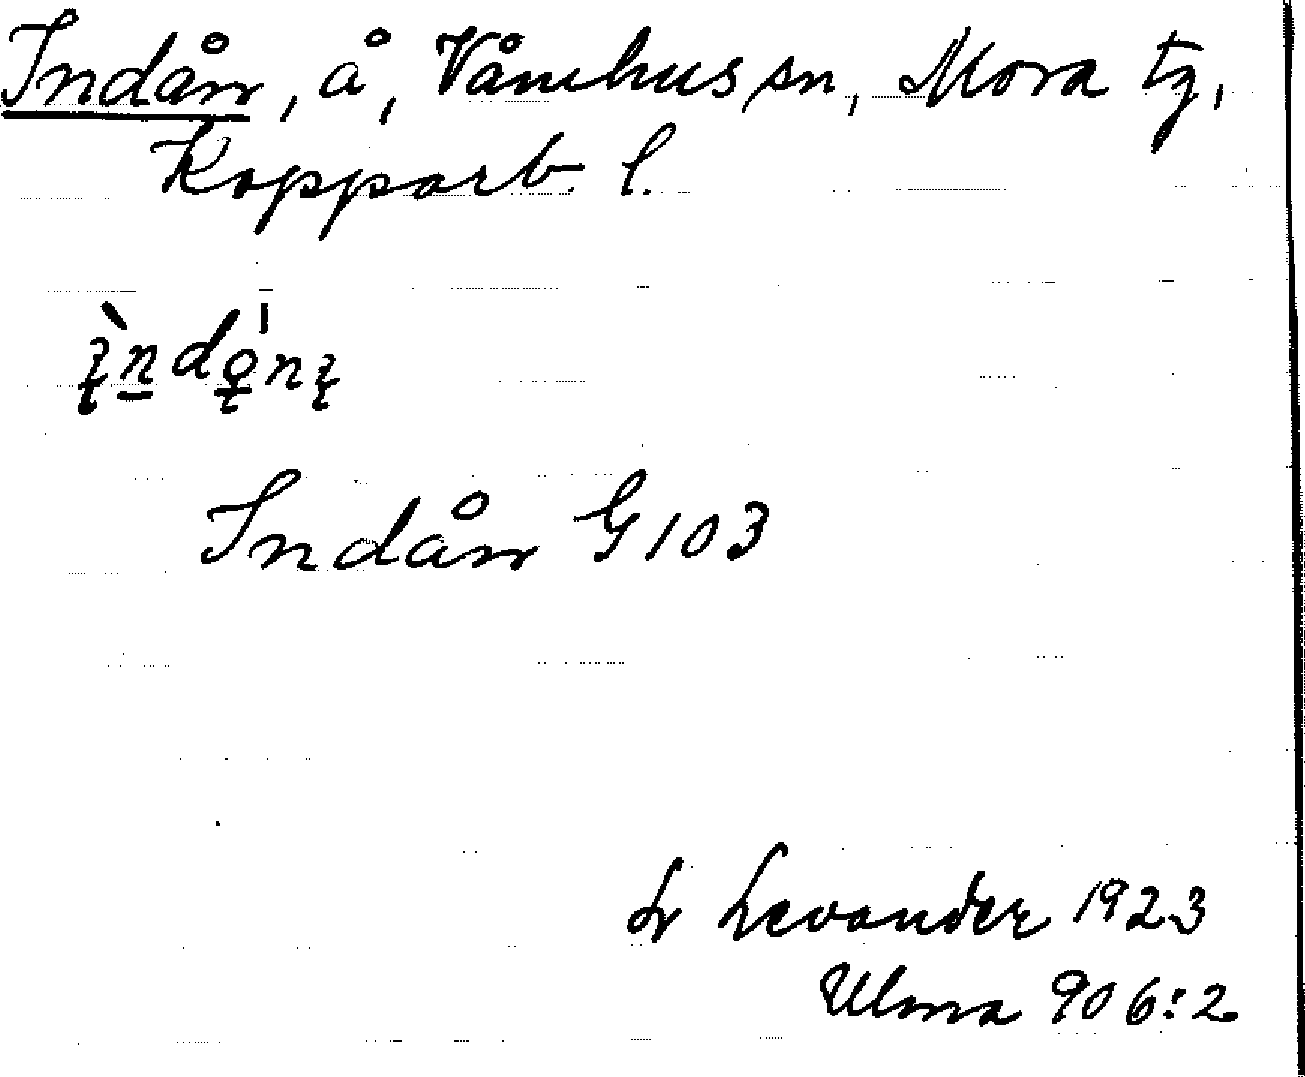 Indån, å, Våmhus sn, Mora tg,
Kopparb l.
Indån G 103
L Levander 1923
Ulma 906:2